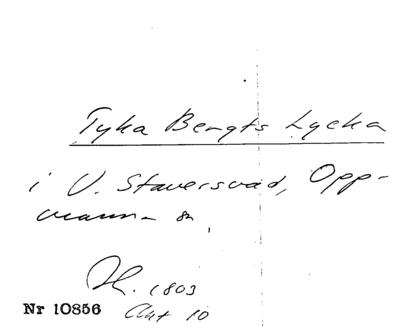 Tyka Bengts Lycka
i V. Staversvad, Opp-
manna sn,
H. 1803
Akt 10
Nr 10856